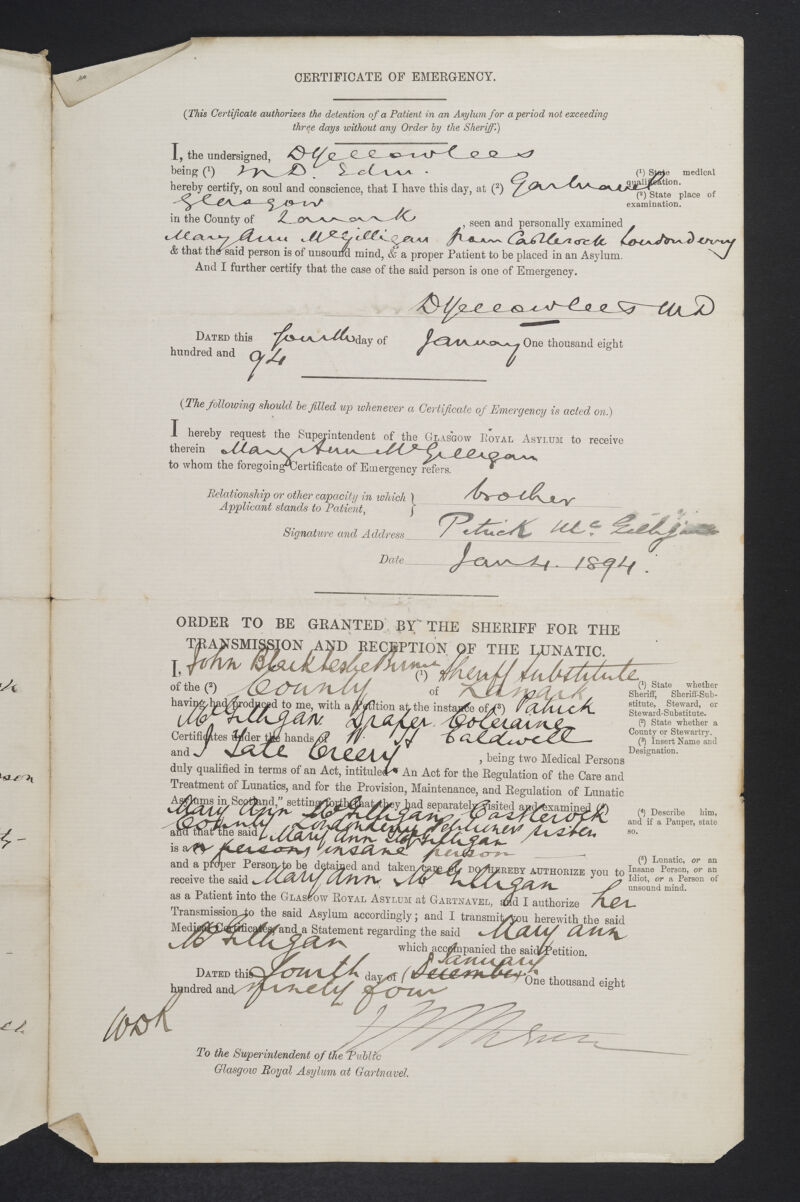 CERTIFICATE OF EMERGENCY.
(This Certificate authorizes the detention of a Patient in an Asylum for a period not exceeding
three days without any Order by the Sheriff.)
I, the undersigned, D Yellowlees
being (¹) M D. Edin.
(¹) State medical
qualification.
hereby certify, on soul and conscience, that I have this day, at (²) Gartnavel
Glasgow
(²) State place of
examination.
in the County of Lanark , seen and personally examined
Mary Ann McGilligan from Castlerock Londonderry
& that the said person is of unsound mind, & a proper Patient to be placed in an Asylum.
And I further certify that the case of the said person is one of Emergency.
D Yellowlees MD
DATED this fourth day of January One thousand eight
hundred and 94
(The following should be filled up whenever a Certificate of Emergency is acted on.)
I hereby request the Superintendent of the GLASGOW ROYAL ASYLUM to receive
therein Mary Ann McGilligan
to whom the foregoing Certificate of Emergency refers.
Relationship or other capacity in which
Applicant stands to Patient, } brother
Signature and Address Patrick McGilligan
Date Jan 4. 1894.
ORDER TO BE GRANTED BY THE SHERIFF FOR THE
TRANSMISSION AND RECEPTION OF THE LUNATIC.
I, John Black Leslie Birnie (¹) Sheriff Substitute
of the (²) County of Lanark
(¹) State whether
Sheriff, Sheriff-Sub-
stitute, Steward, or
Steward-Substitute.
(²) State whether a
County or Stewartry.
(³) Insert Name and
Designation.
having had produced to me, with a Petition at the instance of (³) Patrick
McGilligan Draper Coleraine
Certificates under the hands of Caldwell
and Creery , being two Medical Persons
duly qualified in terms of an Act, intituled "An Act for the Regulation of the Care and
Treatment of Lunatics, and for the Provision, Maintenance, and Regulation of Lunatic
Asylums in Scotland," setting forth that they had separately visited and examined (⁴)
Mary Ann McGilligan, Castlerock
County Londonderry Petitioners sister
(⁴) Describe him,
and if a Pauper, state
so.
and that the said Mary Ann McGilligan
is a insane person
and a proper Person to be detained and taken care of, DO HEREBY AUTHORIZE you to
(⁵) Lunatic, or an
Insane Person, or an
Idiot, or a Person of
unsound mind.
receive the said Mary Ann McGilligan
as a Patient into the GLASGOW ROYAL ASYLUM AT GARTNAVEL, and I authorize her
Transmission to the said Asylum accordingly; and I transmit you herewith the said
Medical Certificates, and a Statement regarding the said Mary Ann
McGilligan which accompanied the said Petition.
January
DATED this fourth day of December One thousand eight
hundred and ninety four
To the Superintendent of the Public
Glasgow Royal Asylum at Gartnavel.